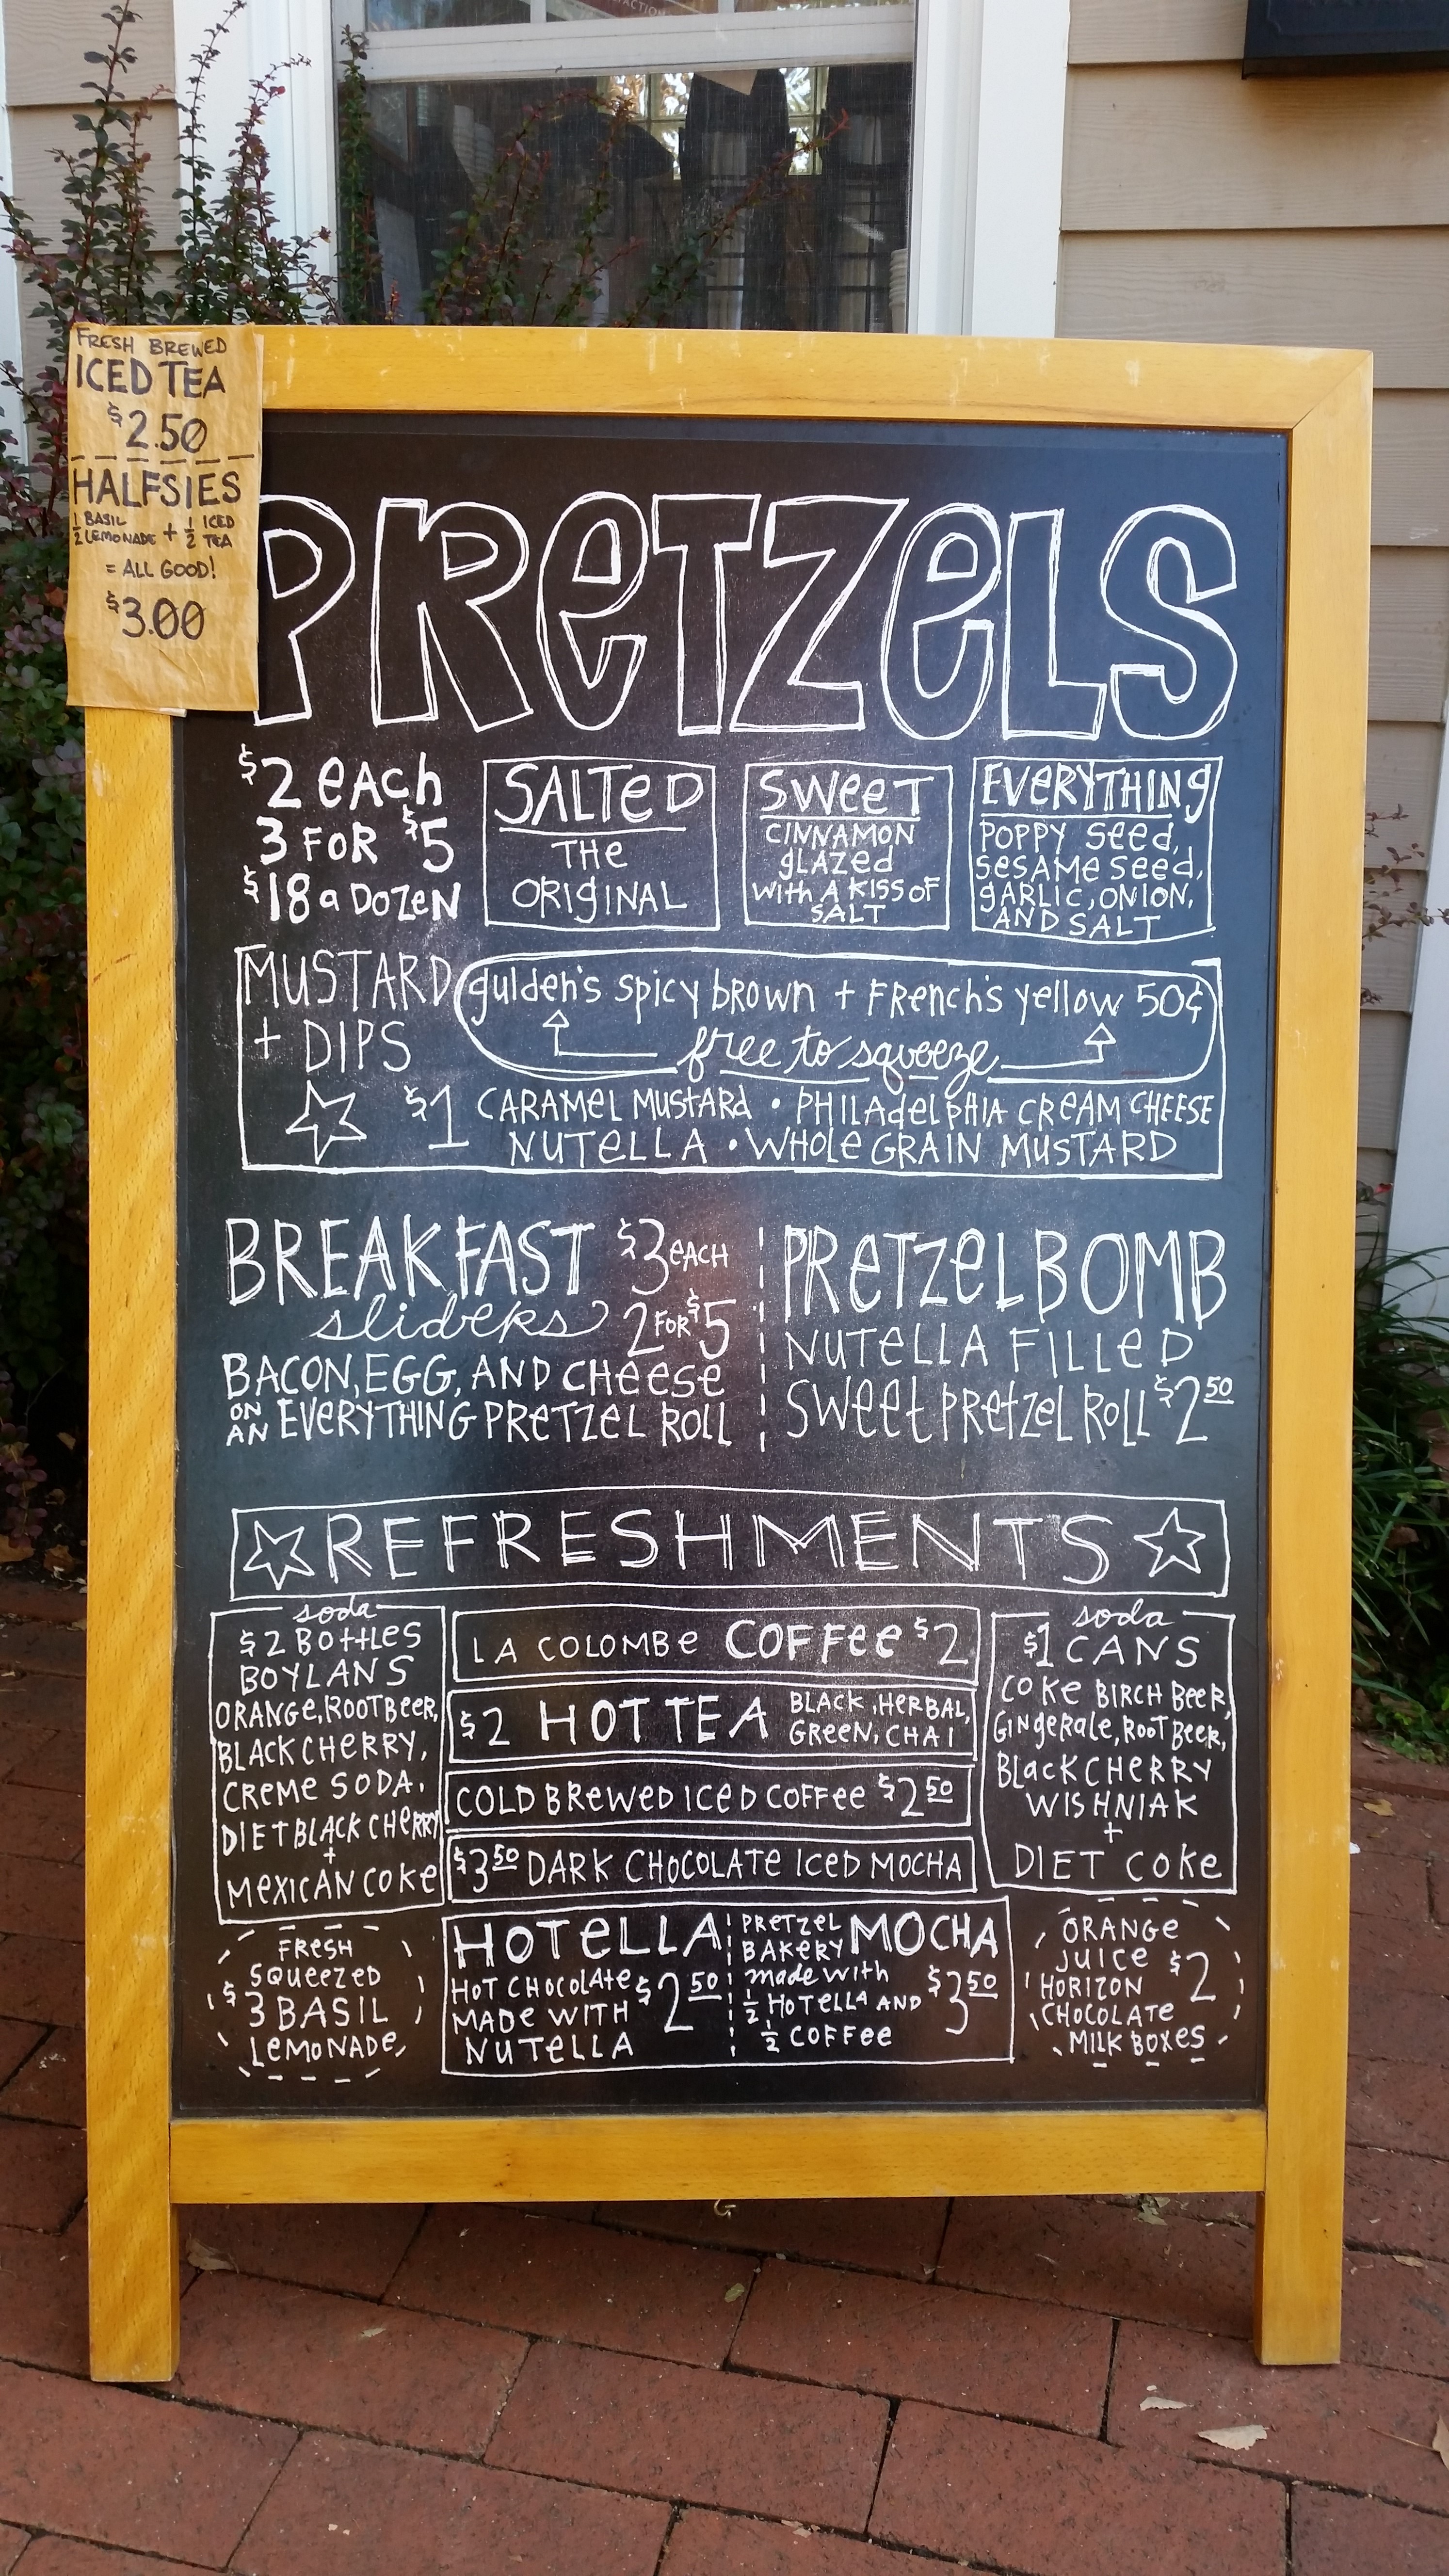 FRESH BREWED
ICED TEA
$2.50
HALFSIES
1/2 BASIL LEMONADE + 1/2 ICED TEA
= ALL GOOD!
$3.00
PRETZELS
$2 EACH
3 FOR $5
$18 a DOZEN
SALTED
THE
ORIGINAL
SWEET
CINNAMON
GLAZED
WITH A KISS OF
SALT
EVERYTHING
POPPY SEED,
SESAME SEED,
GARLIC, ONION,
AND SALT
MUSTARD
+ DIPS
gulden's spicy brown + French's yellow 50¢
free to squeeze
$1 CARAMEL MUSTARD • PHILADELPHIA CREAM CHEESE
NUTELLA • WHOLE GRAIN MUSTARD
BREAKFAST $3 EACH
sliders 2 FOR $5
BACON, EGG, AND CHEESE
ON AN EVERYTHING PRETZEL ROLL
PRETZEL BOMB
NUTELLA FILLED
SWEET PRETZEL ROLL $2 50
REFRESHMENTS
soda
$2 BOTTLES
BOYLANS
ORANGE, ROOT BEER,
BLACK CHERRY,
CREME SODA,
DIET BLACK CHERRY
+
MEXICAN COKE
LA COLOMBE COFFEE $2
$2 HOT TEA BLACK, HERBAL,
GREEN, CHAI
COLD BREWED ICED COFFEE $2 50
$3 50 DARK CHOCOLATE ICED MOCHA
soda
$1 CANS
COKE BIRCH BEER,
GINGERALE, ROOT BEER,
BLACK CHERRY
WISHNIAK
+
DIET COKE
FRESH
SQUEEZED
$3 BASIL
LEMONADE,
HOTELLA
HOT CHOCOLATE
MADE WITH
NUTELLA
$2 50
PRETZEL
BAKERY MOCHA
made with
1/2 HOTELLA AND
1/2 COFFEE
$3 50
ORANGE
JUICE
HORIZON
CHOCOLATE
MILK BOXES
$2